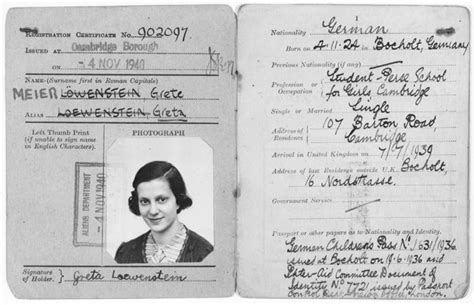 REGISTRATION CERTIFICATE No. 902097.
ISSUED AT Cambridge Borough
ON 4 NOV 1940
NAME (Surname first in Roman Capitals)
MEIER LOEWENSTEIN Grete
ALIAS LOEWENSTEIN Greta
Left Thumb Print
(if unable to sign name
in English Characters).
PHOTOGRAPH
ALIENS DEPARTMENT
4 NOV 1940
Signature
of Holder.
Greta Loewenstein
1
Nationality German
Born on 4.11.24 in Bocholt, Germany
Previous Nationality (if any)
Profession or
Occupation
Student Perse School
for Girls Cambridge
Single or Married Single
Address of
Residence
107 Barton Road,
Cambridge
Arrival in United Kingdom on 7/7/1939
Address of last Residence outside U.K. Bocholt,
16 Nordstrasse.
Government Service
Passport or other papers as to Nationality and Identity.
German Children's Pass No. 1631/1936
issued at Bocholt on 19.6.1936 and
Inter-Aid Committee Document of
Identity No 7721 issued by Passport
Control London.